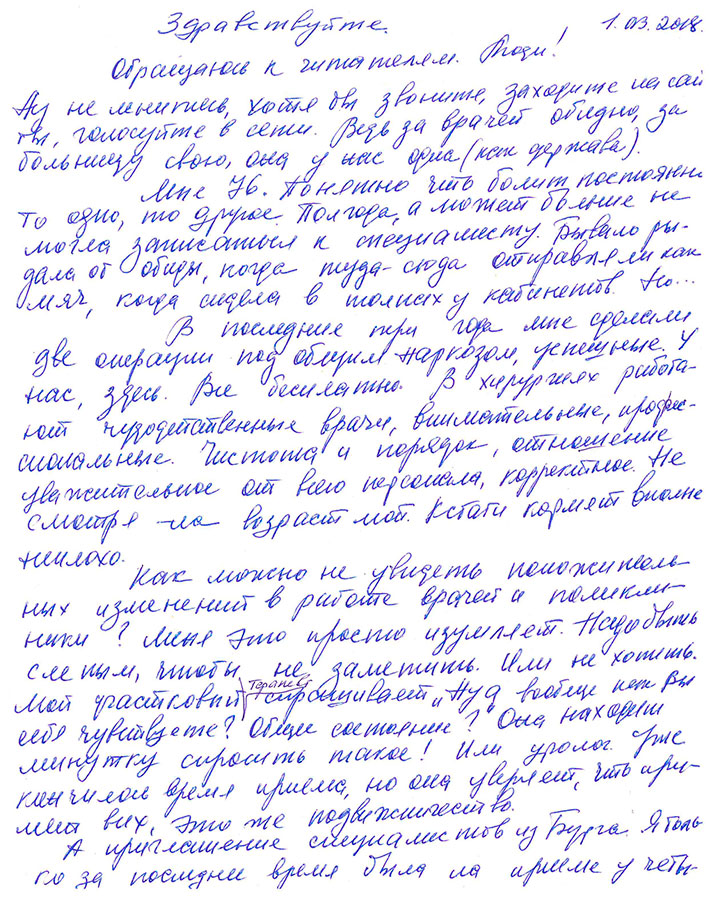 Здравствуйте. 1.03.2018.
Обращаюсь к читателям. Люди!
Ну не ленитесь, хотя бы звоните, заходите на сай
ты, голосуйте в сети. Ведь за врачей обидно, за
больницу свою, она у нас одна (как держава).
Мне 76. Понятно что болит постоянно
то одно, то другое. Полгода, а может больше не
могла записаться к специалисту. Бывало ры-
дала от обиды, когда туда-сюда отправляли как
мяч, когда сидела в толпах у кабинетов. Но...
В последние три года мне сделали
две операции под общим наркозом, успешные. У
нас, здесь. Все бесплатно. В хирургиях работа-
ют чудодейственные врачи, внимательные, профес-
сиональные. Чистота и порядок, отношение
уважительное от всего персонала, корректное. Не
смотря на возраст мой. Кстати кормят вполне
неплохо.
Как можно не увидеть положитель-
ных изменений в работе врачей и поликли-
ники? Меня это просто изумляет. Надо быть
слепым, чтобы не заметить. Или не хотеть.
Мой участковый терапевт спрашивает „Ну а вообще как Вы
себя чувствуете? Общее состояние?" Она находит
минутку спросить такое! Или уролог. Уже
кончилось время приема, но она уверяет, что при-
мет всех, это же подвижничество.
А приглашение специалистов из Бурга. Я толь
ко за последнее время была на приеме у четы-